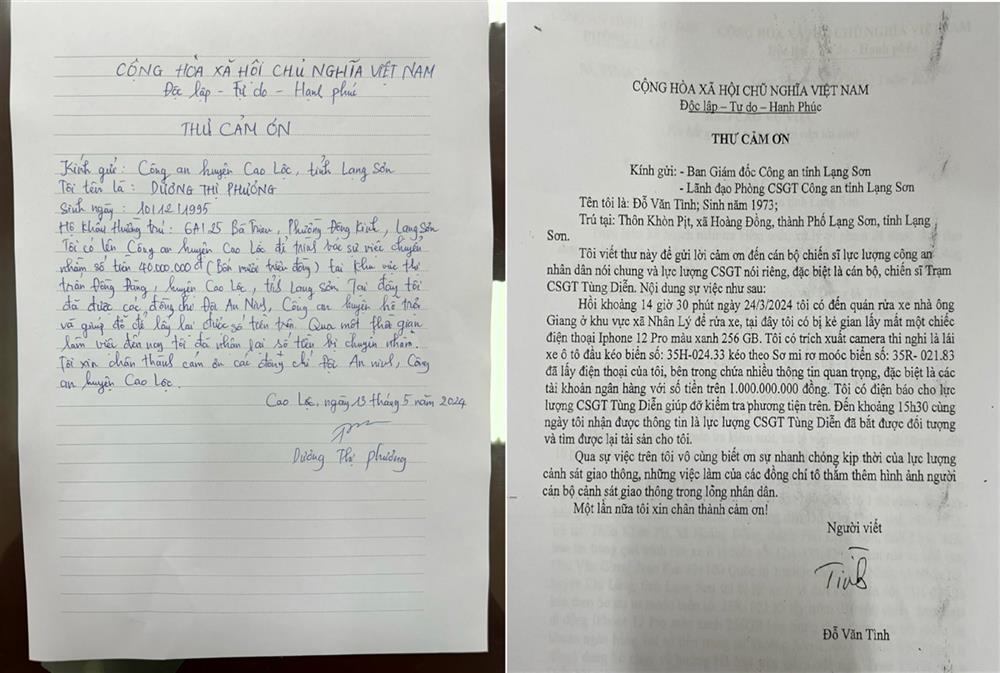 CỘNG HÒA XÃ HỘI CHỦ NGHĨA VIỆT NAM
Độc lập - Tự do - Hạnh phúc
THƯ CẢM ƠN
Kính gửi: Công an huyện Cao Lộc, tỉnh Lạng Sơn
Tôi tên là: DƯƠNG THỊ PHƯỢNG
Sinh ngày: 10/12/1995
Hộ khẩu thường trú: 6A1.25 Bà Triệu, Phường Đông Kinh, Lạng Sơn
Tôi có lên Công an huyện Cao Lộc để trình báo sự việc chuyển
nhầm số tiền 40.000.000đ (Bốn mươi triệu đồng) tại khu vực thị
trấn Đồng Đăng, huyện Cao Lộc, tỉnh Lạng Sơn. Tại đây tôi
đã được các đồng chí Đội An Ninh, Công an huyện hỗ trợ
và giúp đỡ để lấy lại được số tiền trên. Qua một thời gian
làm việc đến nay tôi đã nhận lại số tiền bị chuyển nhầm.
Tôi xin chân thành cảm ơn các đồng chí Đội An ninh, Công
an huyện Cao Lộc.
Cao Lộc, ngày 13 tháng 5 năm 2024
Dương Thị Phượng
CỘNG HÒA XÃ HỘI CHỦ NGHĨA VIỆT NAM
Độc lập – Tự do – Hạnh Phúc
THƯ CẢM ƠN
Kính gửi: - Ban Giám đốc Công an tỉnh Lạng Sơn
- Lãnh đạo Phòng CSGT Công an tỉnh Lạng Sơn
Tên tôi là: Đỗ Văn Tình; Sinh năm 1973;
Trú tại: Thôn Khòn Pịt, xã Hoàng Đồng, thành Phố Lạng Sơn, tỉnh Lạng
Sơn.
Tôi viết thư này để gửi lời cảm ơn đến cán bộ chiến sĩ lực lượng công an
nhân dân nói chung và lực lượng CSGT nói riêng, đặc biệt là cán bộ, chiến sĩ Trạm
CSGT Tùng Diễn. Nội dung sự việc như sau:
Hồi khoảng 14 giờ 30 phút ngày 24/3/2024 tôi có đến quán rửa xe nhà ông
Giang ở khu vực xã Nhân Lý để rửa xe, tại đây tôi có bị kẻ gian lấy mất một chiếc
điện thoại Iphone 12 Pro màu xanh 256 GB. Tôi có trích xuất camera thì nghi là lái
xe ô tô đầu kéo biển số: 35H-024.33 kéo theo Sơ mi rơ moóc biển số: 35R- 021.83
đã lấy điện thoại của tôi, bên trong chứa nhiều thông tin quan trọng, đặc biệt là các
tài khoản ngân hàng với số tiền trên 1.000.000.000 đồng. Tôi có điện báo cho lực
lượng CSGT Tùng Diễn giúp đỡ kiểm tra phương tiện trên. Đến khoảng 15h30 cùng
ngày tôi nhận được thông tin là lực lượng CSGT Tùng Diễn đã bắt được đối tượng
và tìm được lại tài sản cho tôi.
Qua sự việc trên tôi vô cùng biết ơn sự nhanh chóng kịp thời của lực lượng
cảnh sát giao thông, những việc làm của các đồng chí tô thắm thêm hình ảnh người
cán bộ cảnh sát giao thông trong lòng nhân dân.
Một lần nữa tôi xin chân thành cảm ơn!
Người viết
Tình
Đỗ Văn Tình